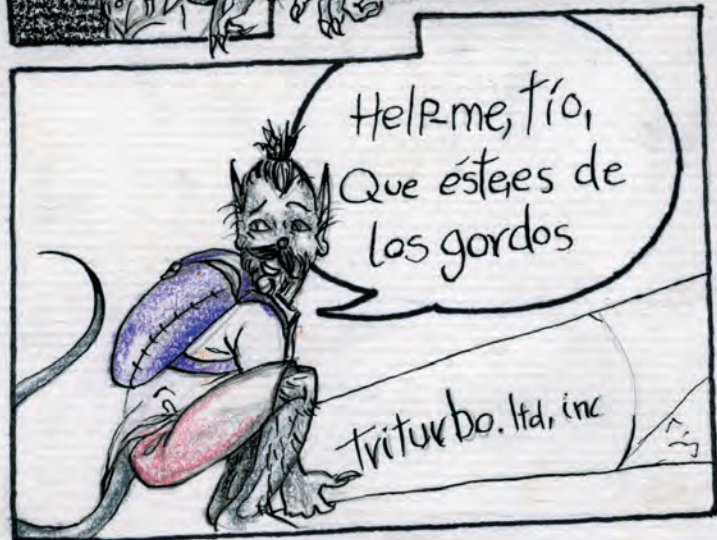 Help-me, tío,
Que éste,es de
los gordos
Triturbo. ltd, inc